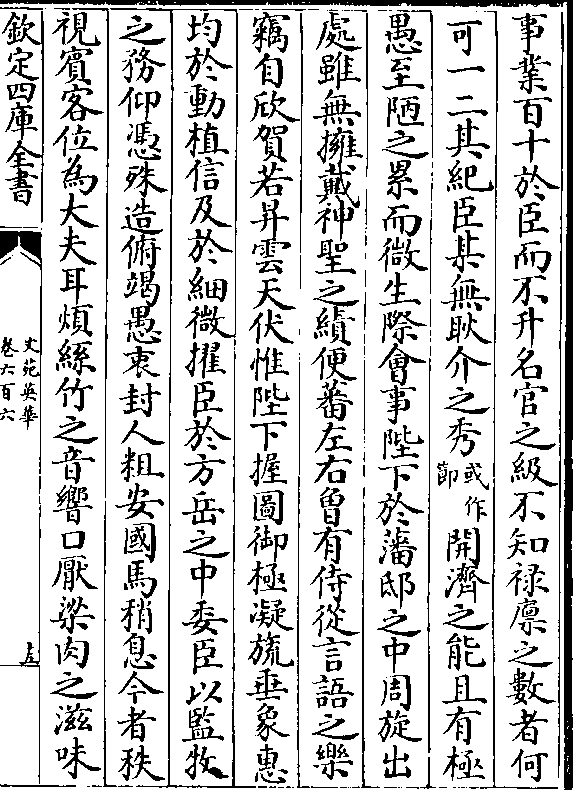 事業百十於臣而不升名官之級不知禄廪之數者何
可一二其紀臣某無耿介之秀或作節開濟之能且有極
愚至陋之累而微生際會事陛下於藩邸之中周旋出
處雖無擁戴神聖之績便蕃左右曽有侍從言語之樂
竊自欣賀若昇雲天伏惟陛下握圖御極凝旒垂象惠
均於動植信及於細微擢臣於方岳之中委臣以監牧
之務仰憑殊造俯竭愚衷封人粗安國馬稍息今者秩
視賓客位為大夫耳煩絲竹之音響口厭粱肉之滋味
欽定四庫全書
文苑英華
卷六百六
五